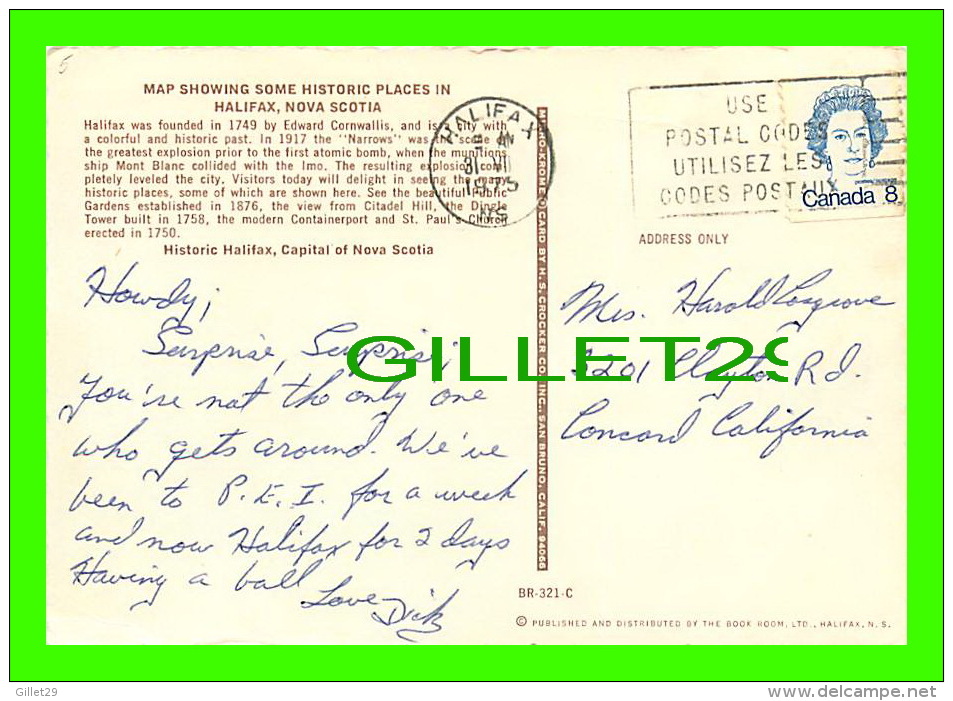 MAP SHOWING SOME HISTORIC PLACES IN
HALIFAX, NOVA SCOTIA
Halifax was founded in 1749 by Edward Cornwallis, and is a city with
a colorful and historic past. In 1917 the "Narrows" was the scene of
the greatest explosion prior to the first atomic bomb, when the munitions
ship Mont Blanc collided with the Imo. The resulting explosion com-
pletely leveled the city. Visitors today will delight in seeing the many
historic places, some of which are shown here. See the beautiful Public
Gardens established in 1876, the view from Citadel Hill, the Dingle
Tower built in 1758, the modern Containerport and St. Paul's Church
erected in 1750.
Historic Halifax, Capital of Nova Scotia
HALIFAX
31 VII
1975
NS
USE
POSTAL CODES
UTILISEZ LES
CODES POSTAUX
Canada 8
ADDRESS ONLY
Howdy;
Surprise, Surprise;
You're not the only one
who gets around. We've
been to P.E.I. for a week
and now Halifax for 2 days
Having a ball
Love Dick
Mrs. Harold Cosgrove
5201 Clayton Rd.
Concord California
GILLET29
BY H.S. CROCKER CO. INC., SAN BRUNO, CALIF. 94066
BR-321-C
© PUBLISHED AND DISTRIBUTED BY THE BOOK ROOM, LTD., HALIFAX, N. S.
5
Gillet29
www.delcampe.net